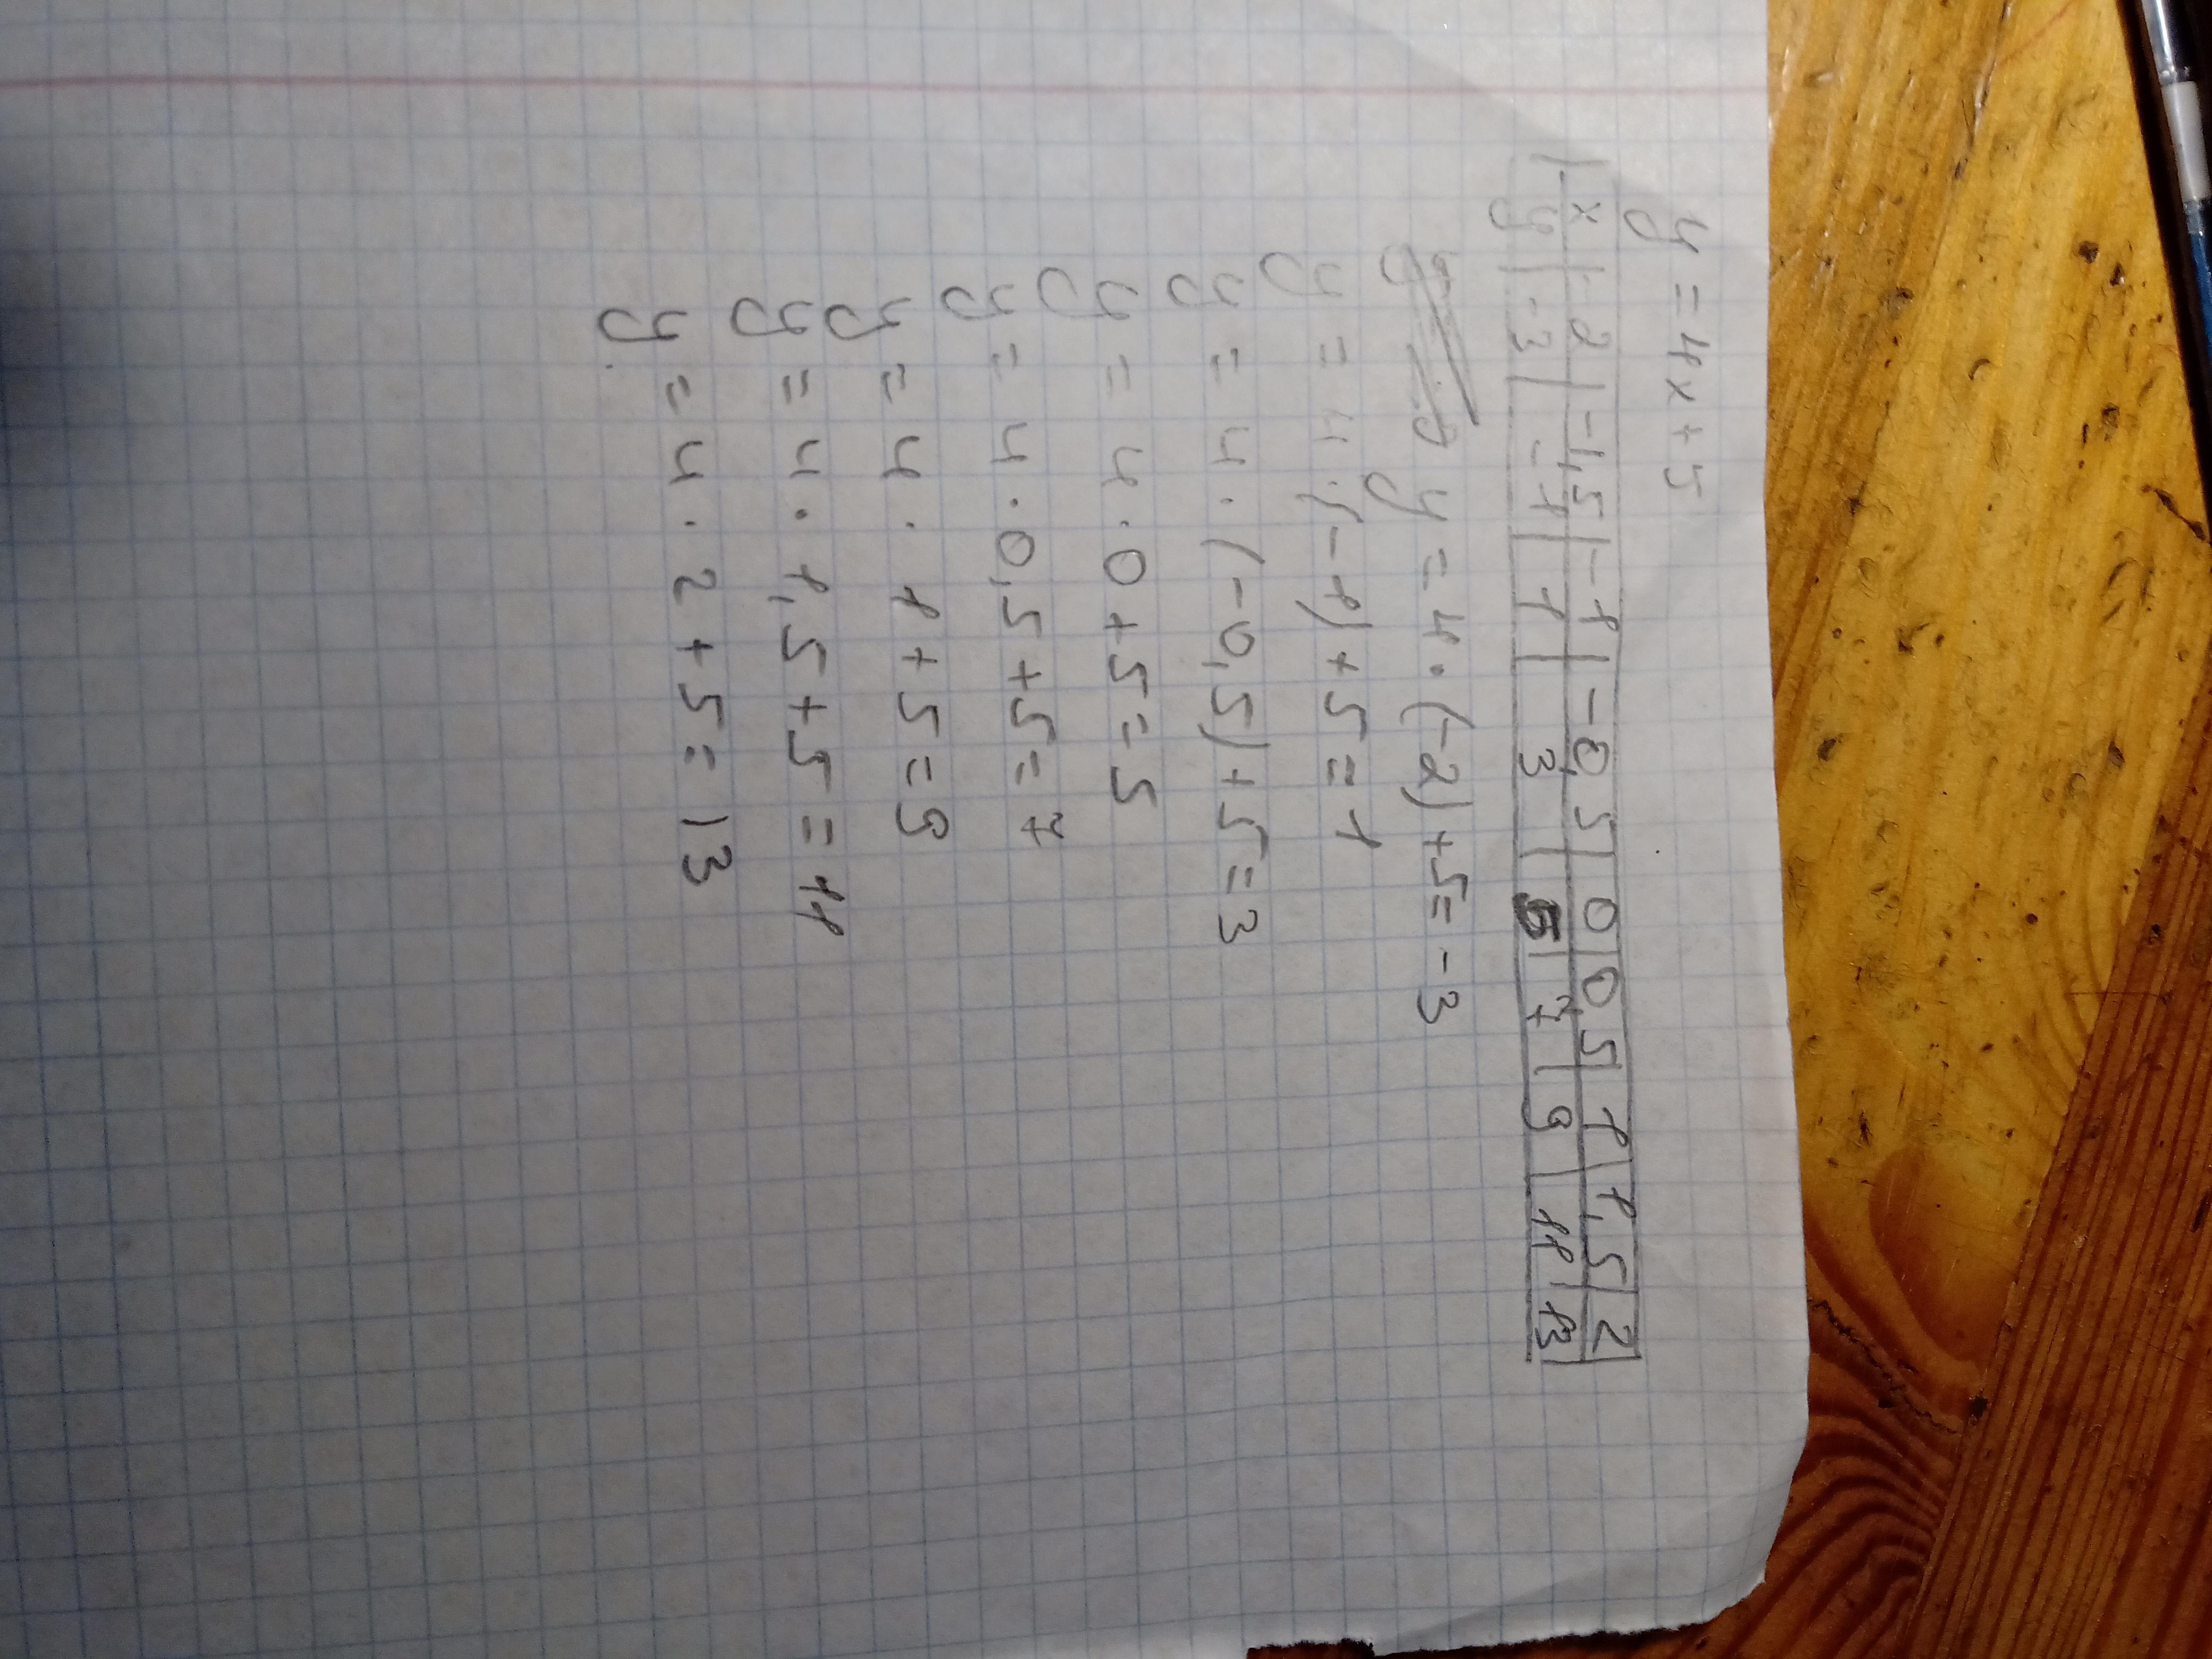 y = 4x + 5
x | -2 | -1,5 | -1 | -0,5 | 0 | 0,5 | 1 | 1,5 | 2
y | -3 | -1 | 1 | 3 | 5 | 7 | 9 | 11 | 13
y = 4 · (-2) + 5 = -3
y = 4 · (-1) + 5 = 1
y = 4 · (-0,5) + 5 = 3
y = 4 · 0 + 5 = 5
y = 4 · 0,5 + 5 = 7
y = 4 · 1 + 5 = 9
y = 4 · 1,5 + 5 = 11
y = 4 · 2 + 5 = 13